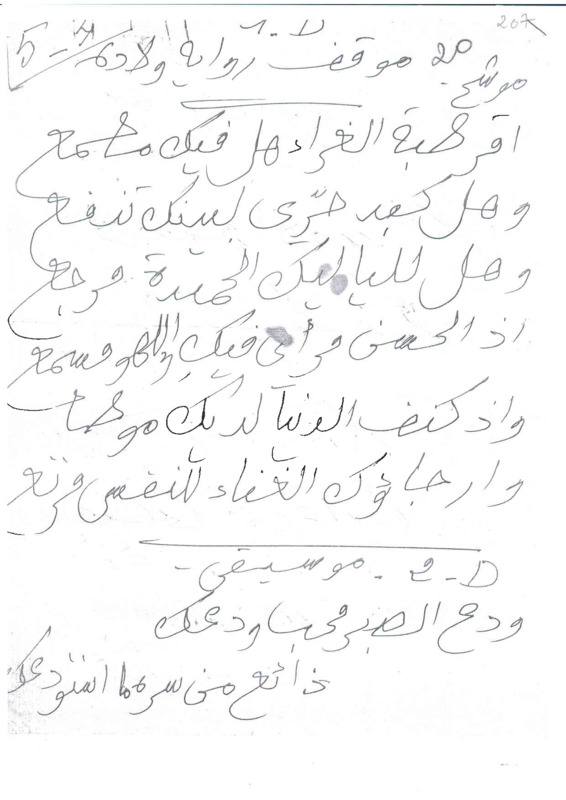 207
5-4 D-1
20 موقف رواية ولادة
موشح -
اقرطبة الغراء هل فيك مطمع
وهل كبد حرّى لبينك تنقع
وهل للياليك الحميدة مرجع
اذ الحسن مرأى فيك واللهو مسمع
واذ كنف الدنيا لديك موطأ
وارجاؤك الغناء للنفس مرتع
2-D - موسيقى -
ودع الصبر محب ودعك
ذائع من سره ما استودعك